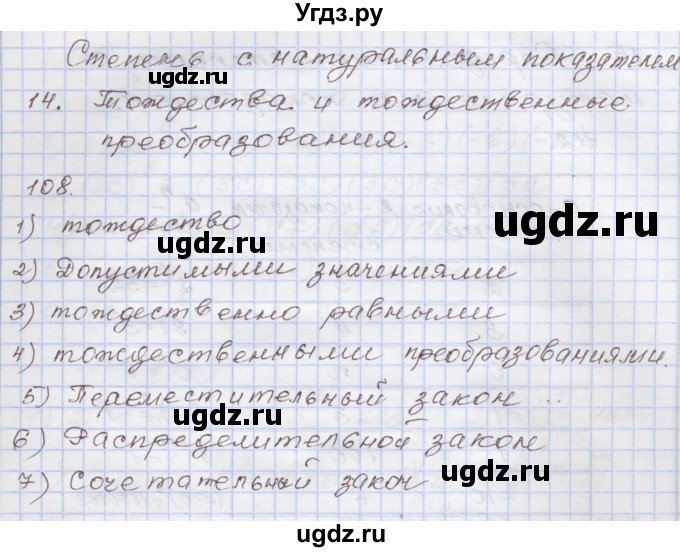 Угдз.ру
Степень с натуральным показателем
14. Тождества и тождественные
преобразования.
108.
1) тождество
2) Допустимыми значениями
3) тождественно равными
4) тождественными преобразованиями.
5) Переместительный закон ...
6) Распределительной закон
7) Сочетательный закон
ugdz.ru
ugdz.ru
ugdz.ru
ugdz.ru
ugdz.ru
ugdz.ru
ugdz.ru
ugdz.ru
ugdz.ru
ugdz.ru
ugdz.ru